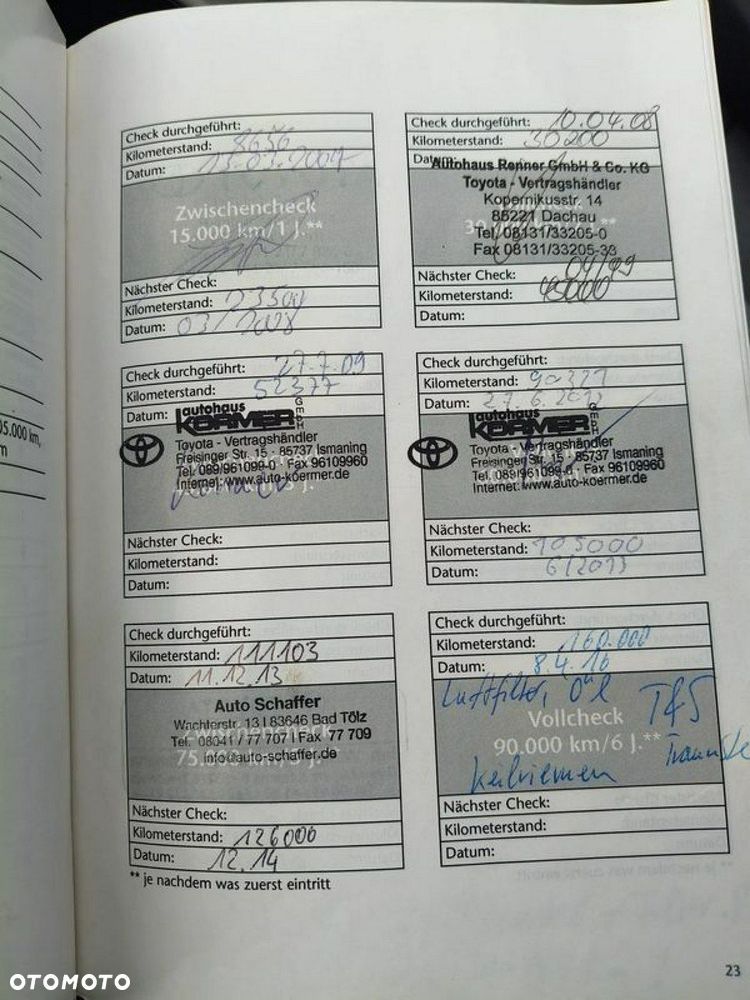 Check durchgeführt:
Kilometerstand: 8656
Datum:
Zwischencheck
15.000 km/1 J.**
Nächster Check:
Kilometerstand: 23500
Datum: 03/2008
Check durchgeführt: 10.04.08
Kilometerstand: 30200
Datum:
Autohaus Renner GmbH & Co. KG
Toyota - Vertragshändler
Kopernikusstr. 14
85221 Dachau
Tel. 08131/33205-0
Fax 08131/33205-33
Nächster Check: 04/09
Kilometerstand: 45000
Datum:
Check durchgeführt: 27.7.09
Kilometerstand: 52377
Datum:
autohaus
KÖRMER GmbH
Toyota - Vertragshändler
Freisinger Str. 15 - 85737 Ismaning
Tel. 089/961099-0 - Fax 96109960
Internet: www.auto-koermer.de
Nächster Check:
Kilometerstand:
Datum:
Check durchgeführt:
Kilometerstand: 90321
Datum: 27.6.2012
autohaus
KÖRMER GmbH
Toyota - Vertragshändler
Freisinger Str. 15 - 85737 Ismaning
Tel. 089/961099-0 - Fax 96109960
Internet: www.auto-koermer.de
Nächster Check:
Kilometerstand: 105000
Datum: 6/2013
Check durchgeführt:
Kilometerstand: 111103
Datum: 11.12.13
Auto Schaffer
Wachterstr. 13 I 83646 Bad Tölz
Tel. 08041 / 77 707 I Fax 77 709
info@auto-schaffer.de
Zwischencheck
75.000 km/5 J.**
Nächster Check:
Kilometerstand: 126000
Datum: 12.14
Check durchgeführt:
Kilometerstand: 160.000
Datum: 8.4.16
Luftfilter, Öl
Vollcheck
90.000 km/6 J.**
Keilriemen
Nächster Check:
Kilometerstand:
Datum:
** je nachdem was zuerst eintritt
05.000 km,
m
23
OTOMOTO